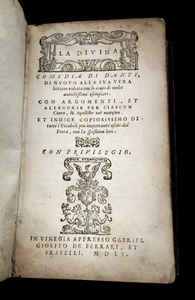 LA DIVINA
COMEDIA DI DANTE,
DI NUOVO ALLA SUA VERA
lettione ridotta con lo aiuto di molti
antichissimi esemplari.
CON ARGOMENTI, ET
ALLEGORIE PER CIASCUN
Canto, & Apostille nel margine.
ET INDICE COPIOSISSIMO DI
tutti i Vocaboli piu importanti usati dal
Poeta, con la sposition loro.
CON PRIVILEGIO.
IN VINEGIA APPRESSO GABRIEL
GIOLITO DE FERRARI, ET
FRATELLI. MDLV.